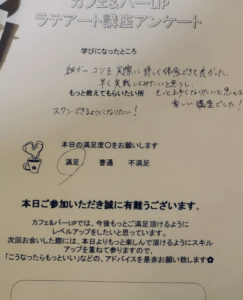 カフェ&バーLIP
ラテアート講座アンケート
学びになったところ
細かいコツを実際に詳しく体感できて良かった。
早く実戦してみたいと思うし、
もっと教えてもらいたい所
もっと上手くなりたいと思える
楽しい講座でした!
スワンできるようになりたい!
本日の満足度○をお願いします
満足 普通 不満足
本日ご参加いただき誠に有難うございます。
カフェ&バーLIPでは、今後もっとご満足頂けるように
レベルアップをしたいと思っています。
次回お会いした際には、本日よりもっと楽しんで頂けるようにスキル
アップを重ねて参りますので、
「こうなったらもっといい」などの、アドバイスを是非お願い致します✿